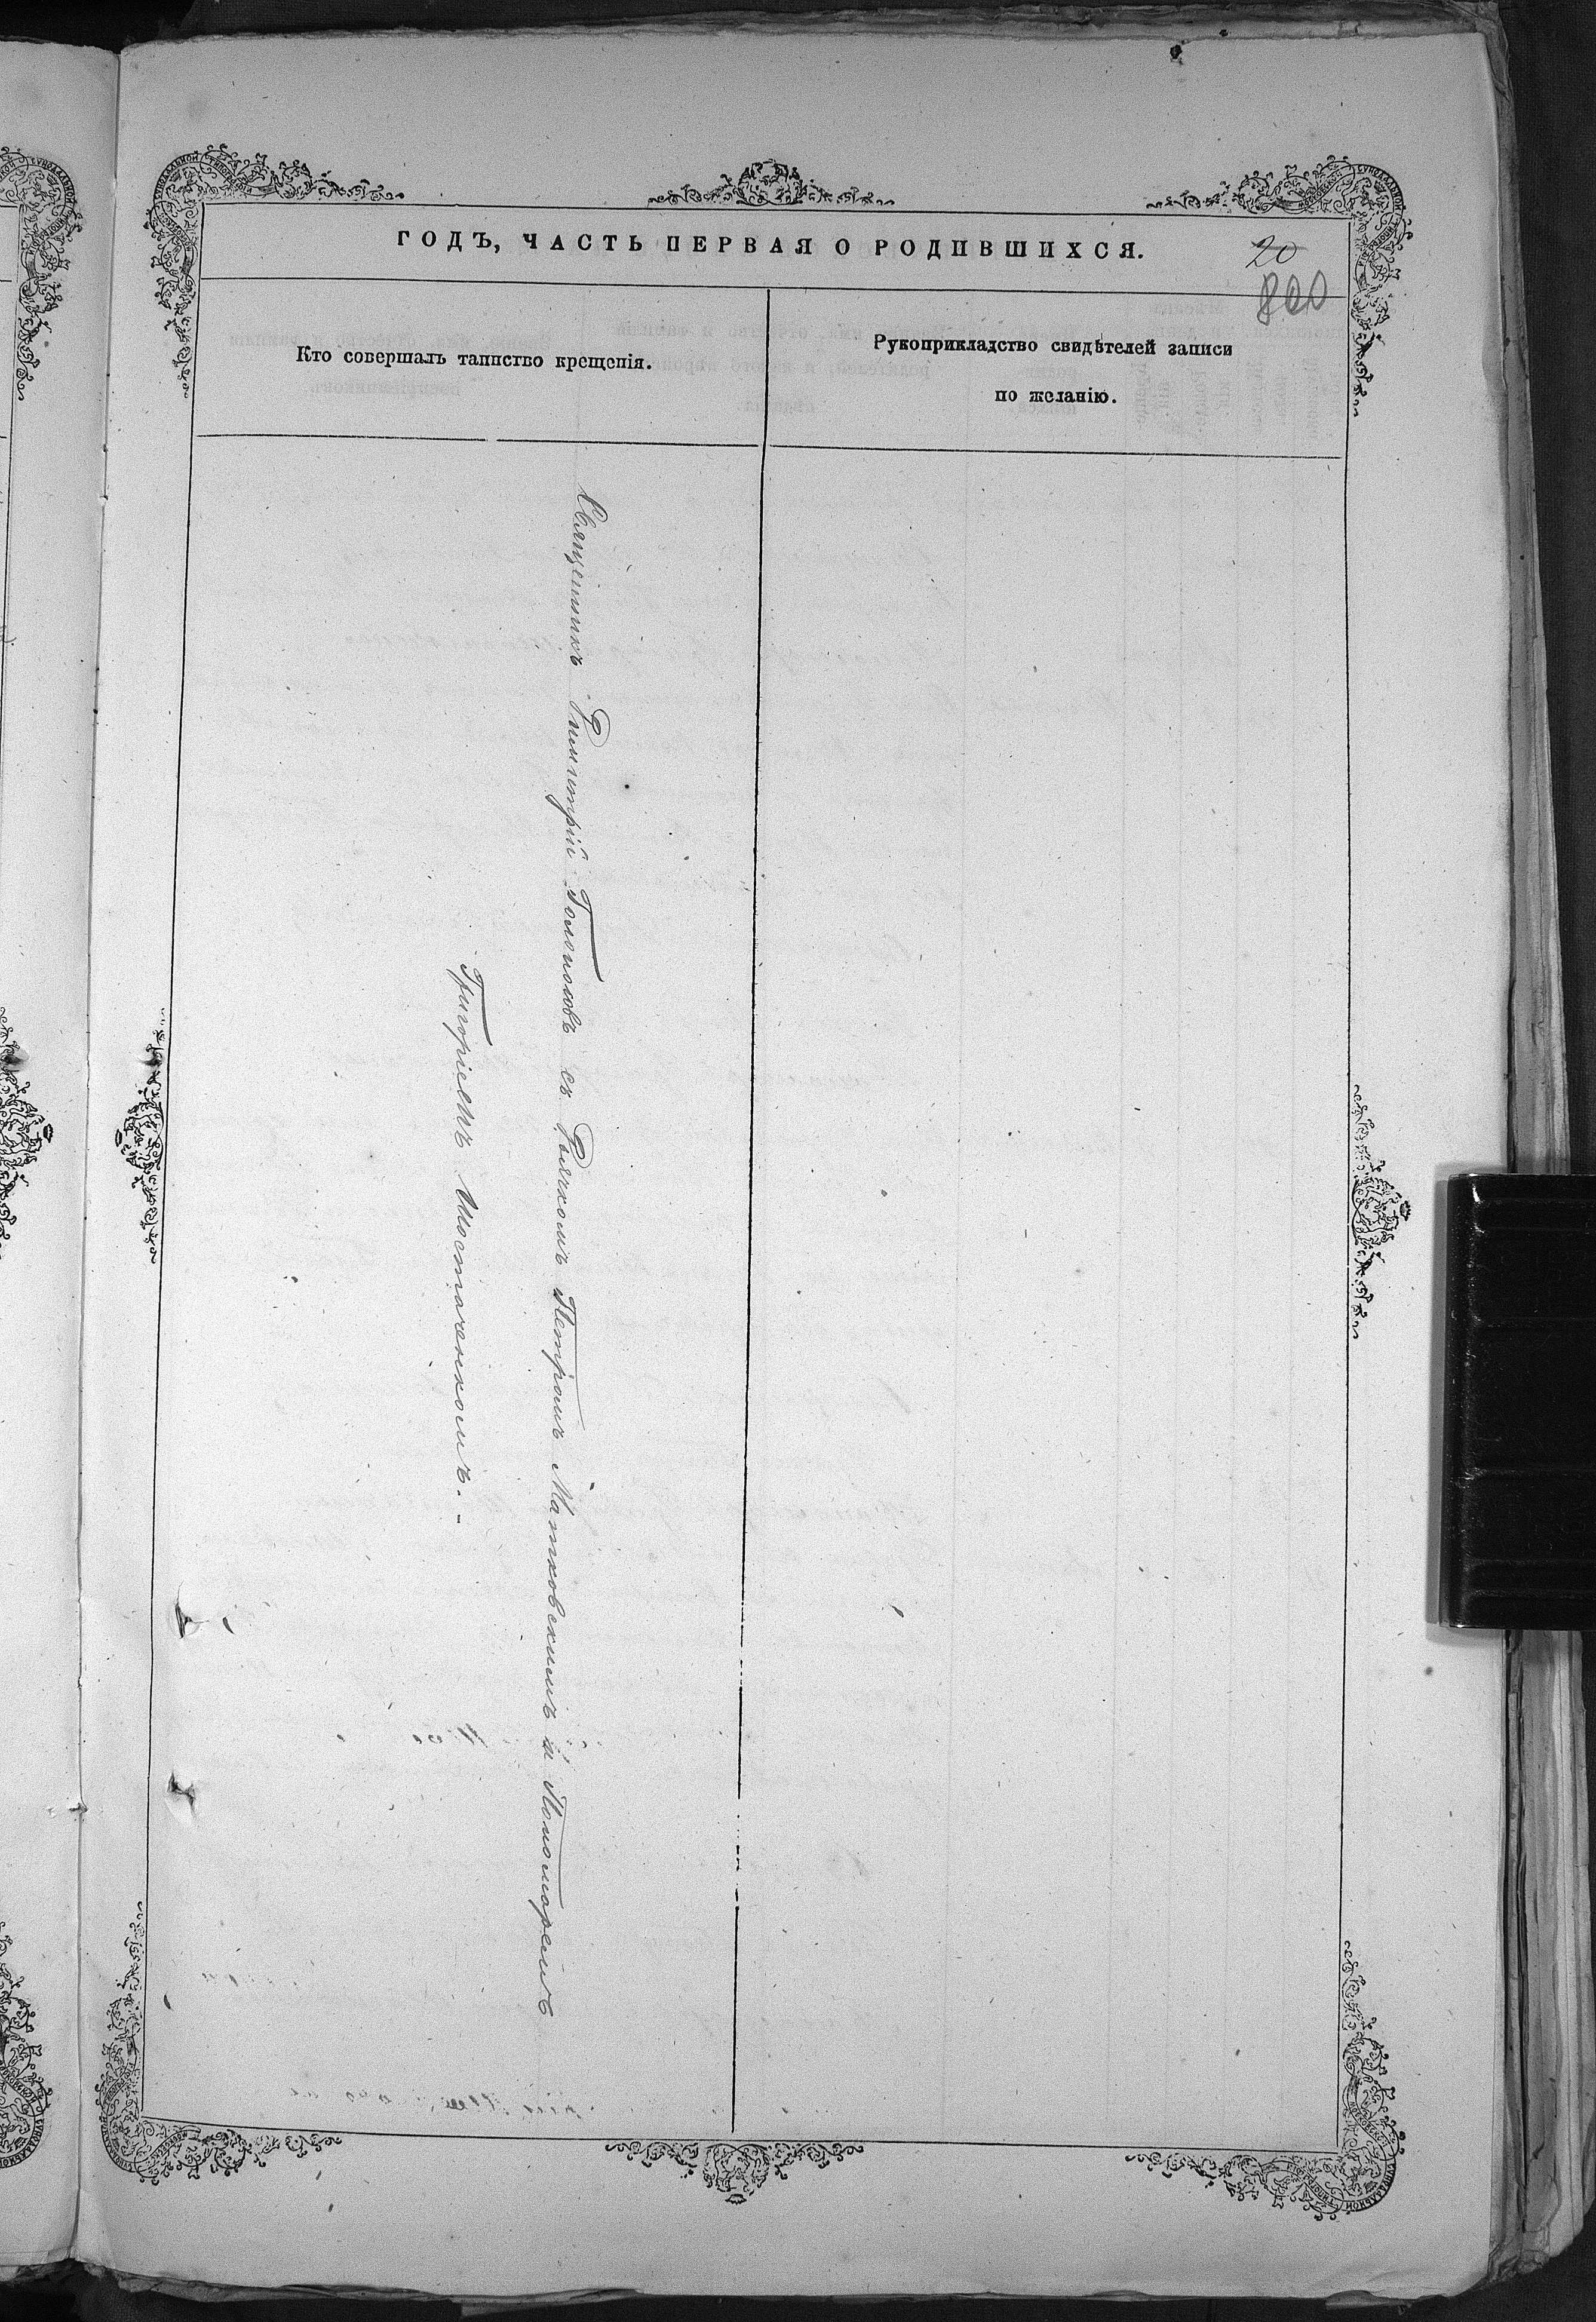 ГОДЪ, ЧАСТЬ ПЕРВАЯ О РОДИВШИХСЯ.
20
800
Кто совершалъ таинство крещенія.
Рукоприкладство свидѣтелей записи
по желанію.
Священникъ Димитрій Голоповъ съ Дьячкомъ Петромъ Матковскимъ и Пономаремъ
Григоріемъ Шостаченкомъ.-